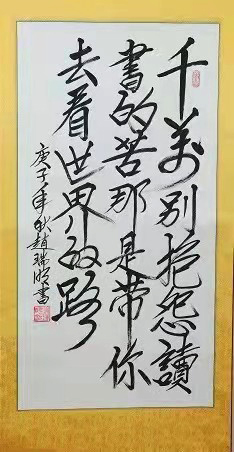 千萬別抱怨讀
書的苦那是帶你
去看世界的路
庚子年秋趙瑞明書